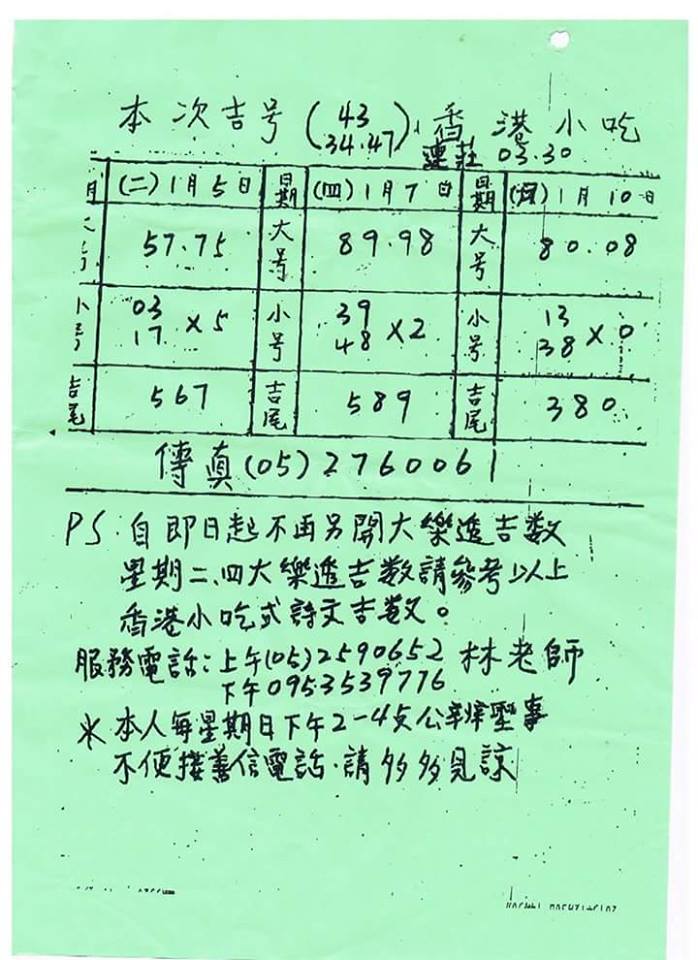 本次吉号(43 34.47)香港小吃
連莊 03.30
(二)1月5日 日期 (四)1月7日 日期 1月10日
57.75 大号 89.98 大号 80.08
小号 03 17 ×5 小号 39 48 ×2 小号 13 38 ×0
吉尾 567 吉尾 589 吉尾 380
傳真(05)2760061
PS.自即日起不再另開大樂透吉数
星期二、四大樂透吉数請參考以上
香港小吃式詩文吉数。
服務電話:上午(05)2590652 林老師
下午0953539776
*本人每星期日下午2-4 公辦聖事
不便接善信電話.請多多見諒